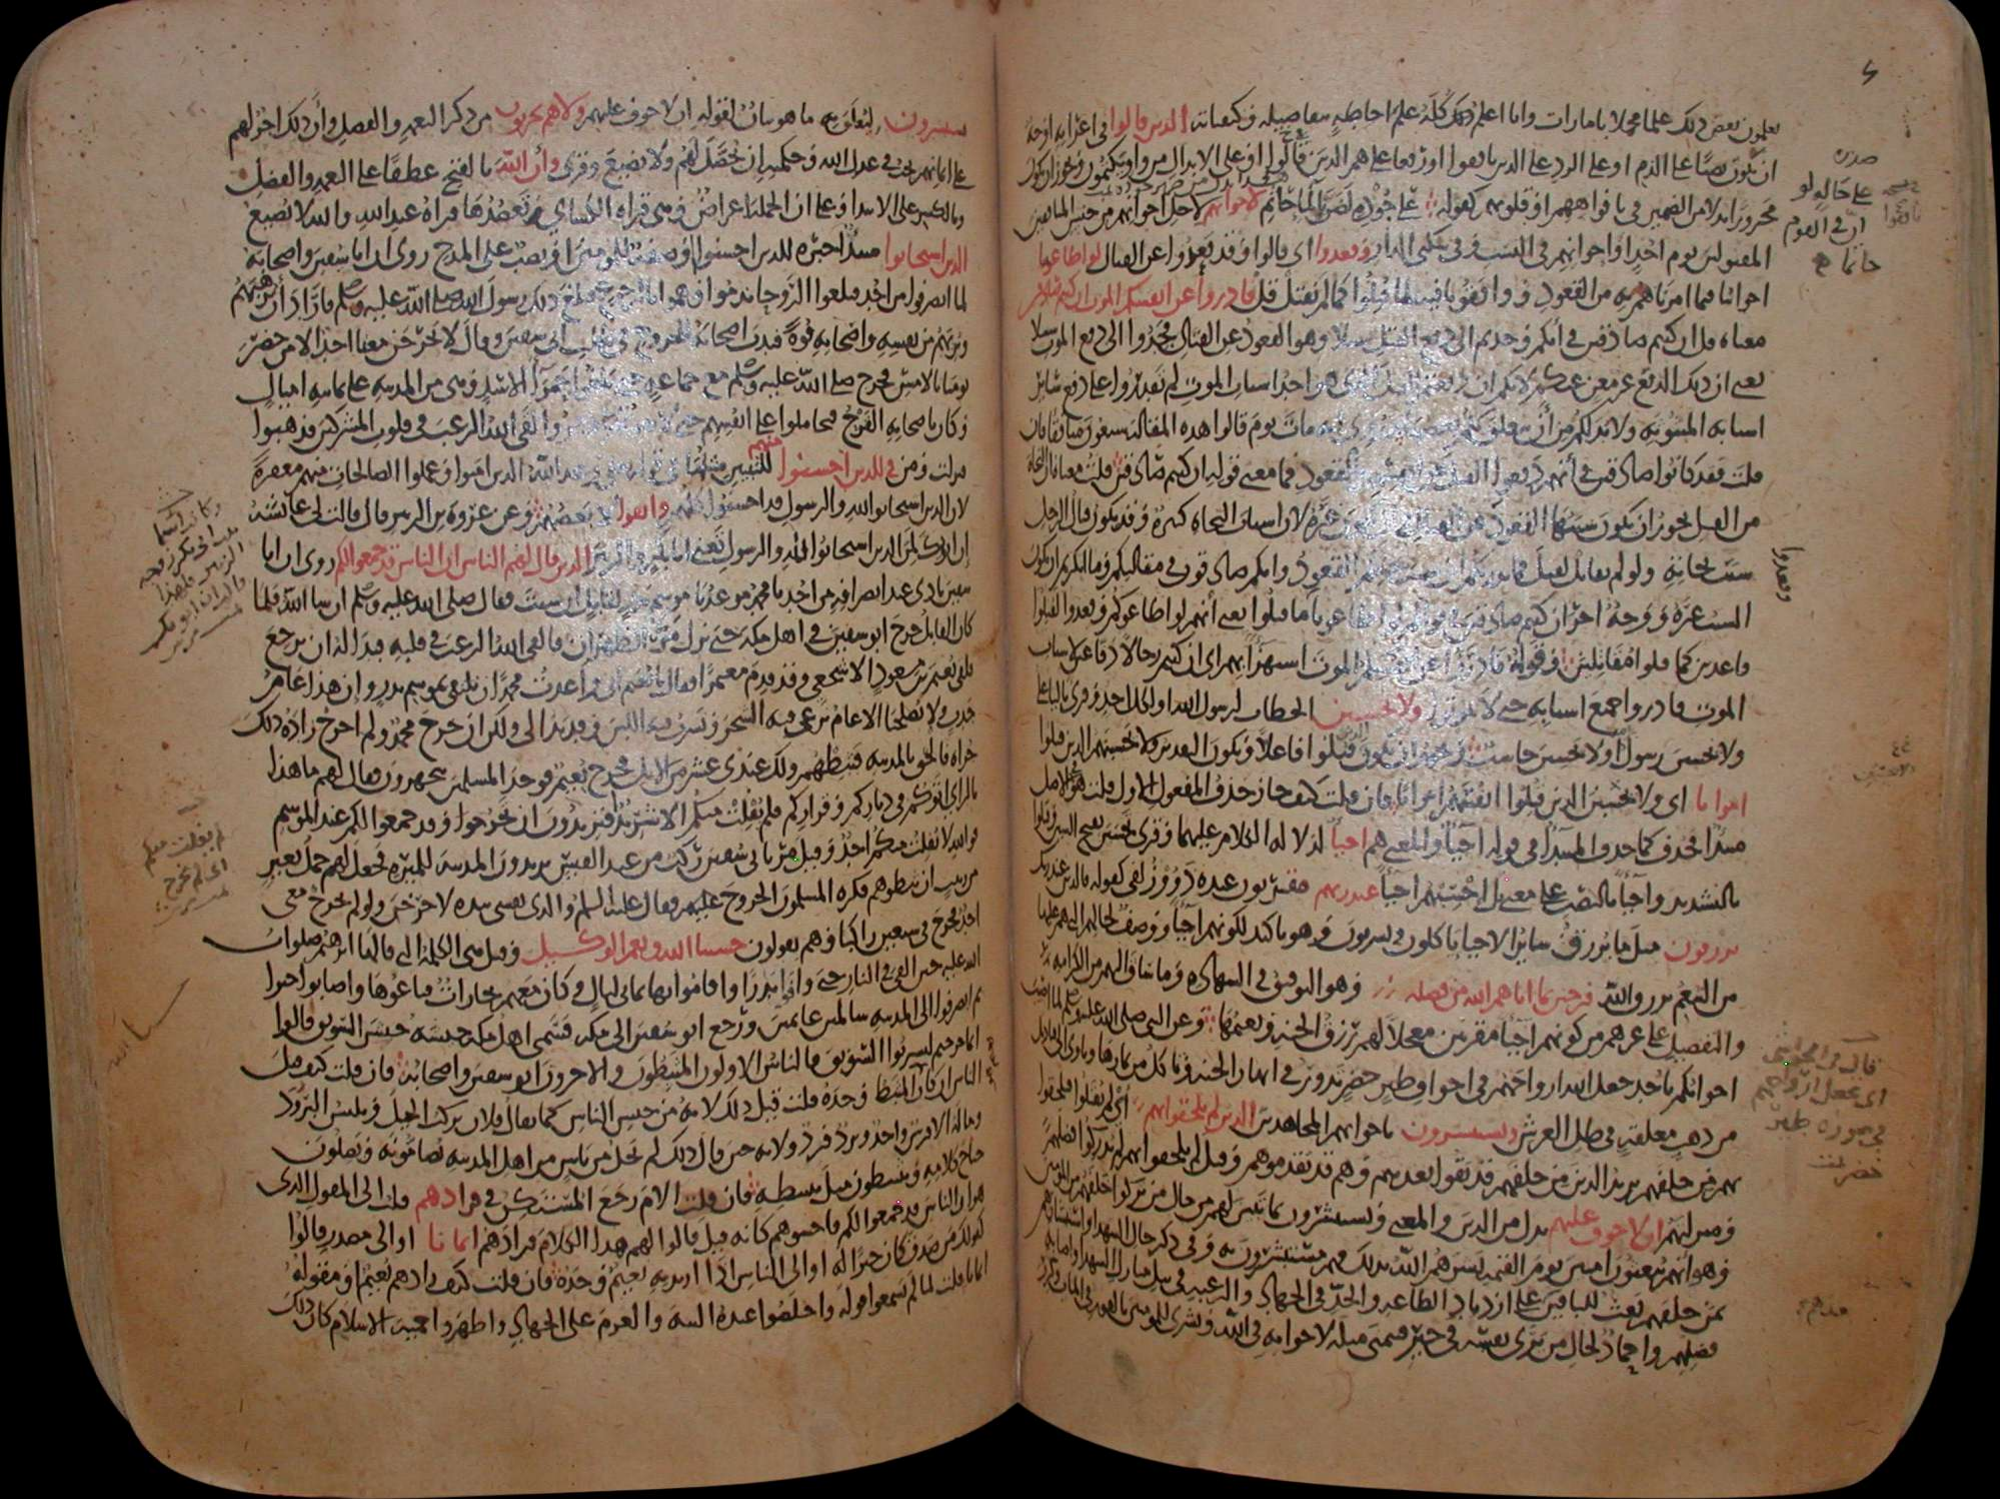 يعلمون بعض ذلك علما مجملا بامارات وانا اعلم ذلك كله علم احاطة بتفاصيله وكيفياته الذين قالوا في اعرابه اوجه
ان يكون نصبا على الذم او على الرد على الذين نافقوا او رفعا على هم الذين قالوا او على الابدال من واو يكتمون ويجوز ان يكون
مجرورا بدلا من الضمير في بافواههم او قلوبهم كقوله على جوده لضن بالماء حاتم لاخوانهم لاجل اخوانهم من جنس المنافقين
المقتولين يوم احد او اخوانهم في النسب وفي سكنى الدار وقعدوا اي قالوا وقد قعدوا عن القتال لو اطاعونا
اخواننا فيما امرناهم به من القعود ووافقونا فيه لما قتلوا كما لم نقتل قل فادرءوا عن انفسكم الموت ان كنتم صادقين
معناه قل ان كنتم صادقين في انكم وجدتم الى دفع القتل سبيلا وهو القعود عن القتال فجدوا الى دفع الموت سبيلا
يعني ان ذلك الدفع غير مغن عنكم لانكم ان دفعتم القتل الذي هو احد اسباب الموت لم تقدروا على دفع سائر
اسبابه المبثوثة ولا بد لكم من ان يتعلق بكم بعضها وروي انه مات يوم قالوا هذه المقالة سبعون منافقا فان
قلت فقد كانوا صادقين في انهم دفعوا القتل عن انفسهم بالقعود فما معنى قوله ان كنتم صادقين قلت معناه ان النجاة
من القتل يجوز ان يكون سببها القعود عن القتال وان يكون غيره لان اسباب النجاة كثيرة وقد يكون قتال الرجل
سبب نجاته ولو لم يقاتل لقتل فما يدريكم ان سبب نجاتكم القعود وانكم صادقون في مقالتكم وما انكرتم ان يكون
السبب غيره ووجه اخر ان كنتم صادقين في قولكم لو اطاعونا ما قتلوا يعني انهم لو اطاعوكم وقعدوا لقتلوا
قاعدين كما قتلوا مقاتلين وقوله فادرءوا عن انفسكم الموت استهزاء بهم اي ان كنتم رجالا دفاعين لاسباب
الموت فادرءوا جميع اسبابه حتى لا تموتوا ولا تحسبن الخطاب لرسول الله او لكل احد وقرئ بالياء على
ولا يحسبن رسول الله او ولا يحسبن حاسب ويجوز ان يكون الذين قتلوا فاعلا ويكون التقدير ولا يحسبنهم الذين قتلوا
امواتا اي ولا يحسبن الذين قتلوا انفسهم امواتا فان قلت كيف جاز حذف المفعول الاول قلت هو في الاصل
مبتدأ فحذف كما حذف المبتدأ في قوله احياء والمعنى هم احياء لدلالة الكلام عليهما وقرئ تحسبن بفتح السين وقتلوا
بالتشديد واحياء بالنصب على معنى بل احسبهم احياء عند ربهم مقربون عنده ذوو زلفى كقوله فالذين عند ربك
يرزقون مثل ما يرزق سائر الاحياء ياكلون ويشربون وهو تاكيد لكونهم احياء ووصف لحالهم التي هم عليها
من التنعم برزق الله فرحين بما اتاهم الله من فضله وهو التوفيق في الشهادة وما ساق اليهم من الكرامة
والتفضيل على غيرهم من كونهم احياء مقربين معجلا لهم رزق الجنة ونعيمها وعن النبي صلى الله عليه وسلم لما اصيب
اخوانكم باحد جعل الله ارواحهم في اجواف طير خضر تدور في انهار الجنة وتاكل من ثمارها وتاوي الى قناديل
من ذهب معلقة في ظل العرش ويستبشرون باخوانهم المجاهدين الذين لم يلحقوا بهم اي لم يقتلوا فيلحقوا
بهم من خلفهم يريد الذين من خلفهم قد بقوا بعدهم وهم قد تقدموهم وقيل لم يلحقوا بهم لم يدركوا فضلهم
ومنزلتهم ان لا خوف عليهم بدل من الذين والمعنى ويستبشرون بما تبين لهم من حال من تركوا خلفهم من المؤمنين
وهو انهم يبعثون امنين يوم القيمة بشرهم الله بذلك فهم مستبشرون به وفي ذكر حال الشهداء واستبشارهم
بمن خلفهم بعث للباقين على ازدياد الطاعة والجد في الجهاد والرغبة في نيل منازل الشهداء واصابة
فضلهم واحماد لحال من يرى نفسه في خير فيتمنى مثله لاخوانه في الله وبشرى للمؤمنين بالفوز في المآب وكرر
صدره
على حالة لو
ان في القوم
حاتما
وقعدوا
قال في الحواشي
اي تجعل ارواحهم
في صورة طير
خضر
يستبشرون ليتعلق به ما هو بيان لقوله ان لا خوف عليهم ولا هم يحزنون من ذكر النعمة والفضل وان ذلك اجر لهم
على ايمانهم يجب في عدل الله وحكمته ان يحصل لهم ولا يضيع وقرئ وان الله بالفتح عطفا على النعمة والفضل
وبالكسر على الابتداء وعلى ان الجملة اعتراض وهي قراة الكسائي وتعضدها قراة عبد الله والله لا يضيع
الذين استجابوا مبتدأ خبره للذين احسنوا او صفة للمؤمنين او نصب على المدح روي ان ابا سفين واصحابه
لما انصرفوا من احد فبلغوا الروحا ندموا وهموا بالرجوع فبلغ ذلك رسول الله صلى الله عليه وسلم فاراد ان يرهبهم
ويريهم من نفسه واصحابه قوة فندب اصحابه للخروج في طلب ابي سفين وقال لا يخرجن معنا احد الا من حضر
يومنا بالامس فخرج صلى الله عليه وسلم مع جماعة حتى بلغوا حمراء الاسد وهي من المدينة على ثمانية اميال
وكان باصحابه القرح فتحاملوا على انفسهم حتى لا يفوتهم الاجر والقى الله الرعب في قلوب المشركين فذهبوا
فنزلت ومن في للذين احسنوا منهم للتبيين مثلها في قوله وعد الله الذين امنوا وعملوا الصالحات منهم مغفرة
لان الذين استجابوا لله والرسول قد احسنوا كلهم واتقوا لا بعضهم وعن عروة بن الزبير قال قالت لي عائشة
ان ابويك لمن الذين استجابوا لله والرسول تعني ابا بكر والزبير الذين قال لهم الناس ان الناس قد جمعوا لكم روي ان ابا
سفين نادى عند انصرافه من احد يا محمد موعدنا موسم بدر لقابل ان شئت فقال صلى الله عليه وسلم ان شا الله فلما
كان القابل خرج ابو سفين في اهل مكة حتى نزل مر الظهران فالقى الله الرعب في قلبه فبدا له ان يرجع
فلقي نعيم بن مسعود الاشجعي وقد قدم معتمرا فقال يا نعيم اني واعدت محمدا ان نلتقي بموسم بدر وان هذا عام
جدب ولا يصلحنا الا عام نرعى فيه الشجر ونشرب فيه اللبن وقد بدا لي ولكن ان خرج محمد ولم اخرج زاده ذلك
جراة فالحق بالمدينة فثبطهم ولك عندي عشر من الابل فخرج نعيم فوجد المسلمين يتجهزون فقال لهم ما هذا
بالراي اتوكم في دياركم وقراركم فلم يفلت منكم الا شريد فتريدون ان تخرجوا وقد جمعوا لكم عند الموسم
فوالله لا يفلت منكم احد وقيل مر بابي سفين ركب من عبد القيس يريدون المدينة للميرة فجعل لهم حمل بعير
من زبيب ان ثبطوهم فكره المسلمون الخروج عليهم فقال عليه السلم والذي نفسي بيده لاخرجن ولو لم يخرج معي
احد فخرج في سبعين راكبا وهم يقولون حسبنا الله ونعم الوكيل وقيل هي الكلمة التي قالها ابرهيم صلوات
الله عليه حين القي في النار حتى وافوا بدرا واقاموا بها ثماني ليال وكان معهم تجارات فباعوها واصابوا خيرا
ثم انصرفوا الى المدينة سالمين غانمين ورجع ابو سفين الى مكة فسمى اهل مكة جيشه جيش السويق قالوا
انما خرجتم لتشربوا السويق فالناس الاولون المثبطون والاخرون ابو سفين واصحابه فان قلت كيف قيل
الناس ان كان المثبط وحده قلت قيل ذلك لانه من جنس الناس كما يقال فلان يركب الخيل ويلبس البرود
وما له الا فرس واحد وبرد فرد ولانه حين قال ذلك لم يخل من ناس من اهل المدينة يضامونه ويصلون
جناح كلامه ويثبطون مثل تثبيطه فان قلت الام رجع المستكن في فزادهم قلت الى المقول الذي
هو ان الناس قد جمعوا لكم فاخشوهم كانه قيل قالوا لهم هذا الكلام فزادهم ايمانا او الى مصدر قالوا
كقولك من صدق كان خيرا له او الى الناس اذا اريد به نعيم وحده فان قلت كيف زادهم نعيم او مقوله
ايمانا قلت لما لم يسمعوا قوله واخلصوا عنده النية والعزم على الجهاد واظهروا حمية الاسلام كان ذلك
لم يفلت منكم
اي لم يخرج